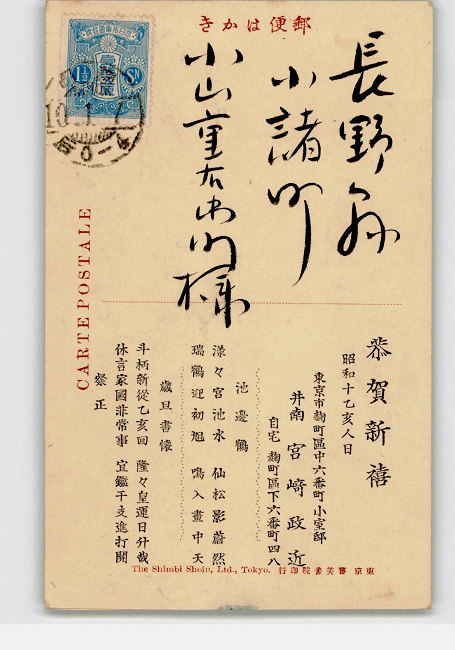 郵便はかき
長野縣
小諸町
小山重右衛門様
CARTE POSTALE
恭賀新禧
昭和十乙亥人日
東京市麹町區中六番町小室邸
井南 宮﨑政近
自宅 麹町區下六番町四八
池邊鶴
漾々宮池水 仙松影蔚然
瑞鶴迎初旭 鳴入畫中天
歳旦書懐
斗柄新從乙亥回 隆々皇運日升哉
休言家國非常事 宜鑑干支進打開
粲正
東京 審美書院印行 The Shimbi Shoin, Ltd., Tokyo.
1½ SN
10.1.7